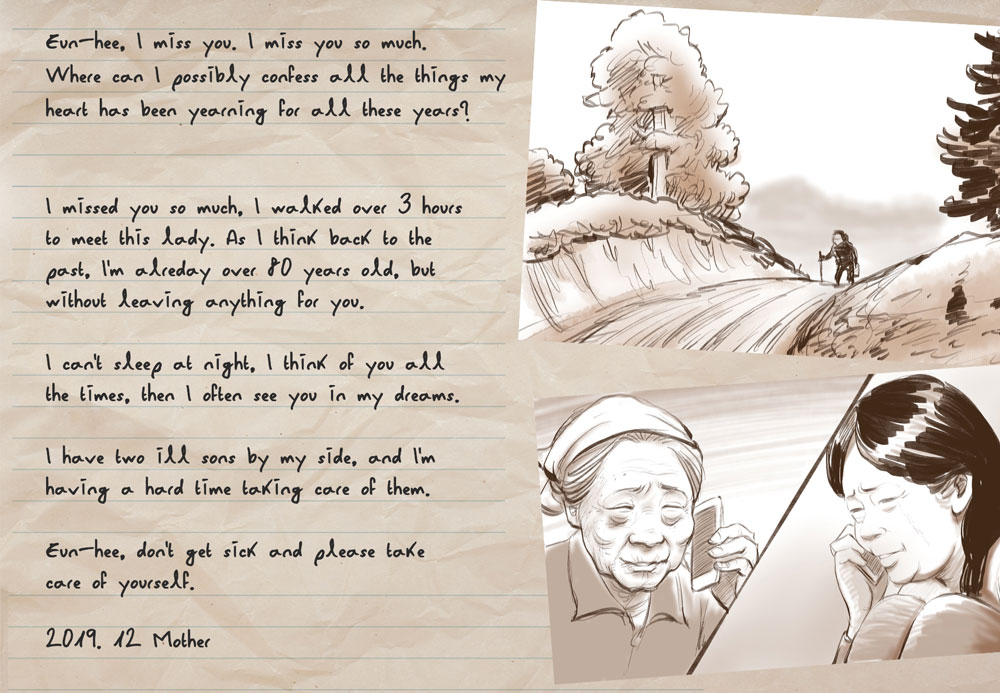 Eun-hee, I miss you. I miss you so much.
Where can I possibly confess all the things my
heart has been yearning for all these years?
I missed you so much, I walked over 3 hours
to meet this lady. As I think back to the
past, I'm alreday over 80 years old, but
without leaving anything for you.
I can't sleep at night, I think of you all
the times, then I often see you in my dreams.
I have two ill sons by my side, and I'm
having a hard time taking care of them.
Eun-hee, don't get sick and please take
care of yourself.
2019. 12 Mother